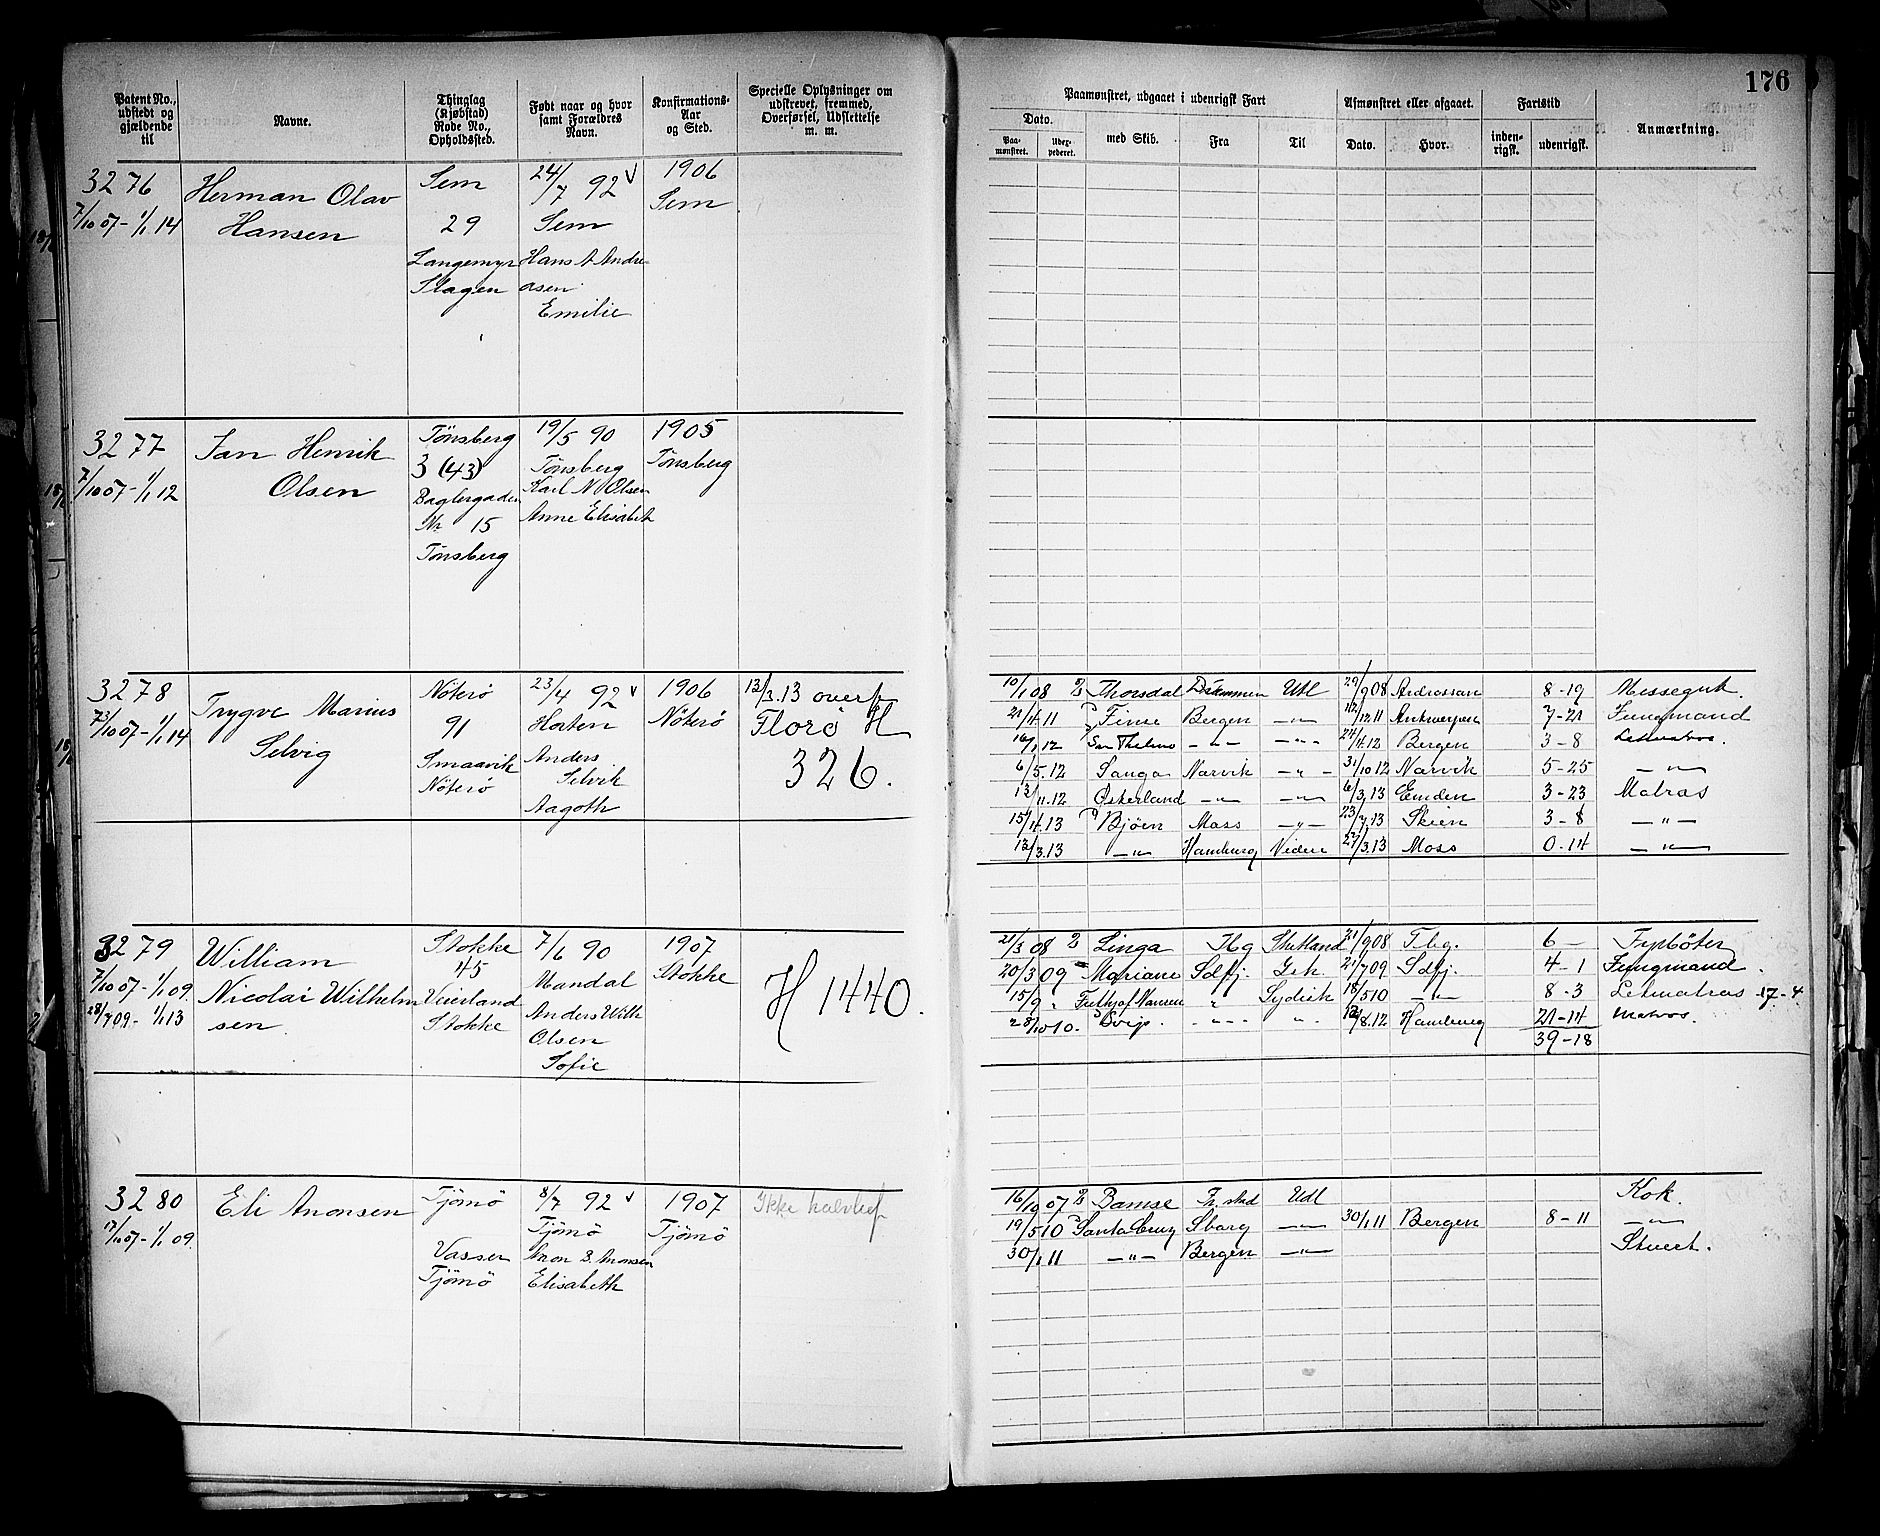 176
Patent No., udstedt og gjældende til
Navne.
Thinglag (Kjøbstad) Rode No., Opholdssted.
Født naar og hvor samt Forældres Navn.
Konfirmations- Aar og Sted.
Specielle Oplysninger om udskrevet, fremmed, Overførsel, Udslettelse m. m.
Paamønstret, udgaaet i udenrigsk Fart
Afmønstret eller afgaaet.
Fartstid
Anmærkning.
Dato.
Paa-mønstret.
med Skib.
Fra
Til
Dato.
Hvor.
inden-rigsk.
udenrigsk.
3276
7/10 07 - 1/1 14
Herman Olav
Hansen
Sem
29
Langemyr
Slagen
24/7 92 v
Sem
Hans A Andre-
asen
Emilie
1906
Sem
3277
7/10 07 - 1/1 12
Jan Henrik
Olsen
Tönsberg
3 (43)
Baglergaden
Nr 15
Tönsberg
19/5 90
Tönsberg
Karl N Olsen
Anne Elisabeth
1905
Tönsberg
3278
- 1/1 14
Trygve Marius
Selvig
Nöterö
91
Smaavik
Nöterö
23/4 92 v
Horten
Anders
Selvik
Aagoth
1906
Nöterö
12/3.13 overf
Florö H
326.
10/1 08 Thorsdal Drammen Udl 29/9 08 Ardrossan 8-19 Messegut.
21/4 11 Finse Bergen -"- 12/12 11 Antwerpen 7-21 Jungmand
16/1 12 San Thelmo -"- -"- 24/4.12 Bergen 3-8 Letmatros.
6/5.12 Sanga Narvik -"- 31/10 12 Narvik 5-25 -"-
12/11.12 Østerland -"- -"- 6/3.13 Emden 3-23 Matros
15/4.13 Bjöen Moss -"- 23/7.13 Skien 3-8 -"-
12/3.13 -"- Hamburg Viden 27/3.13 Moss 0-14 -"-
3279
7/10 07 - 1/1 09.
28/7 09 - 1/1 13
William
Nicolai Wilhelm
sen.
Stokke
45
Veierland
Stokke
7/6 90
Mandal
Anders Wilh
Olsen
Sofie
1907
Stokke
H 1440.
21/3 08 Linga Tbg Shetland 21/9 08 Tbg. 6 - Fyrböter
20/3 09 Mariane Sdfj. Ish 21/7 09 Sdfj. 4-1 Jungmand.
15/9 " Fridtjof Nansen " Sydisk 18/5 10 -"- 8-3 Letmatros 17-4
28/10 10. Svip. -"- " /8.12 Hamburg 21-14 Matros.
39-18
3280
- 1/1 09.
Eli Anonsen
Tjömö
Vassen
Tjömö
8/7 92 v
Tjömö
Anon B. Anonsen
Elisabeth
1907
Tjömö
Ikke
16/10 07 Bamse Fr.stad Udl Kok.
19/5 10 Santa Cruz Sbarg -"- 30/1 11 Bergen 8-11 -"-
30/1 11 -"- Bergen -"- Stuert.